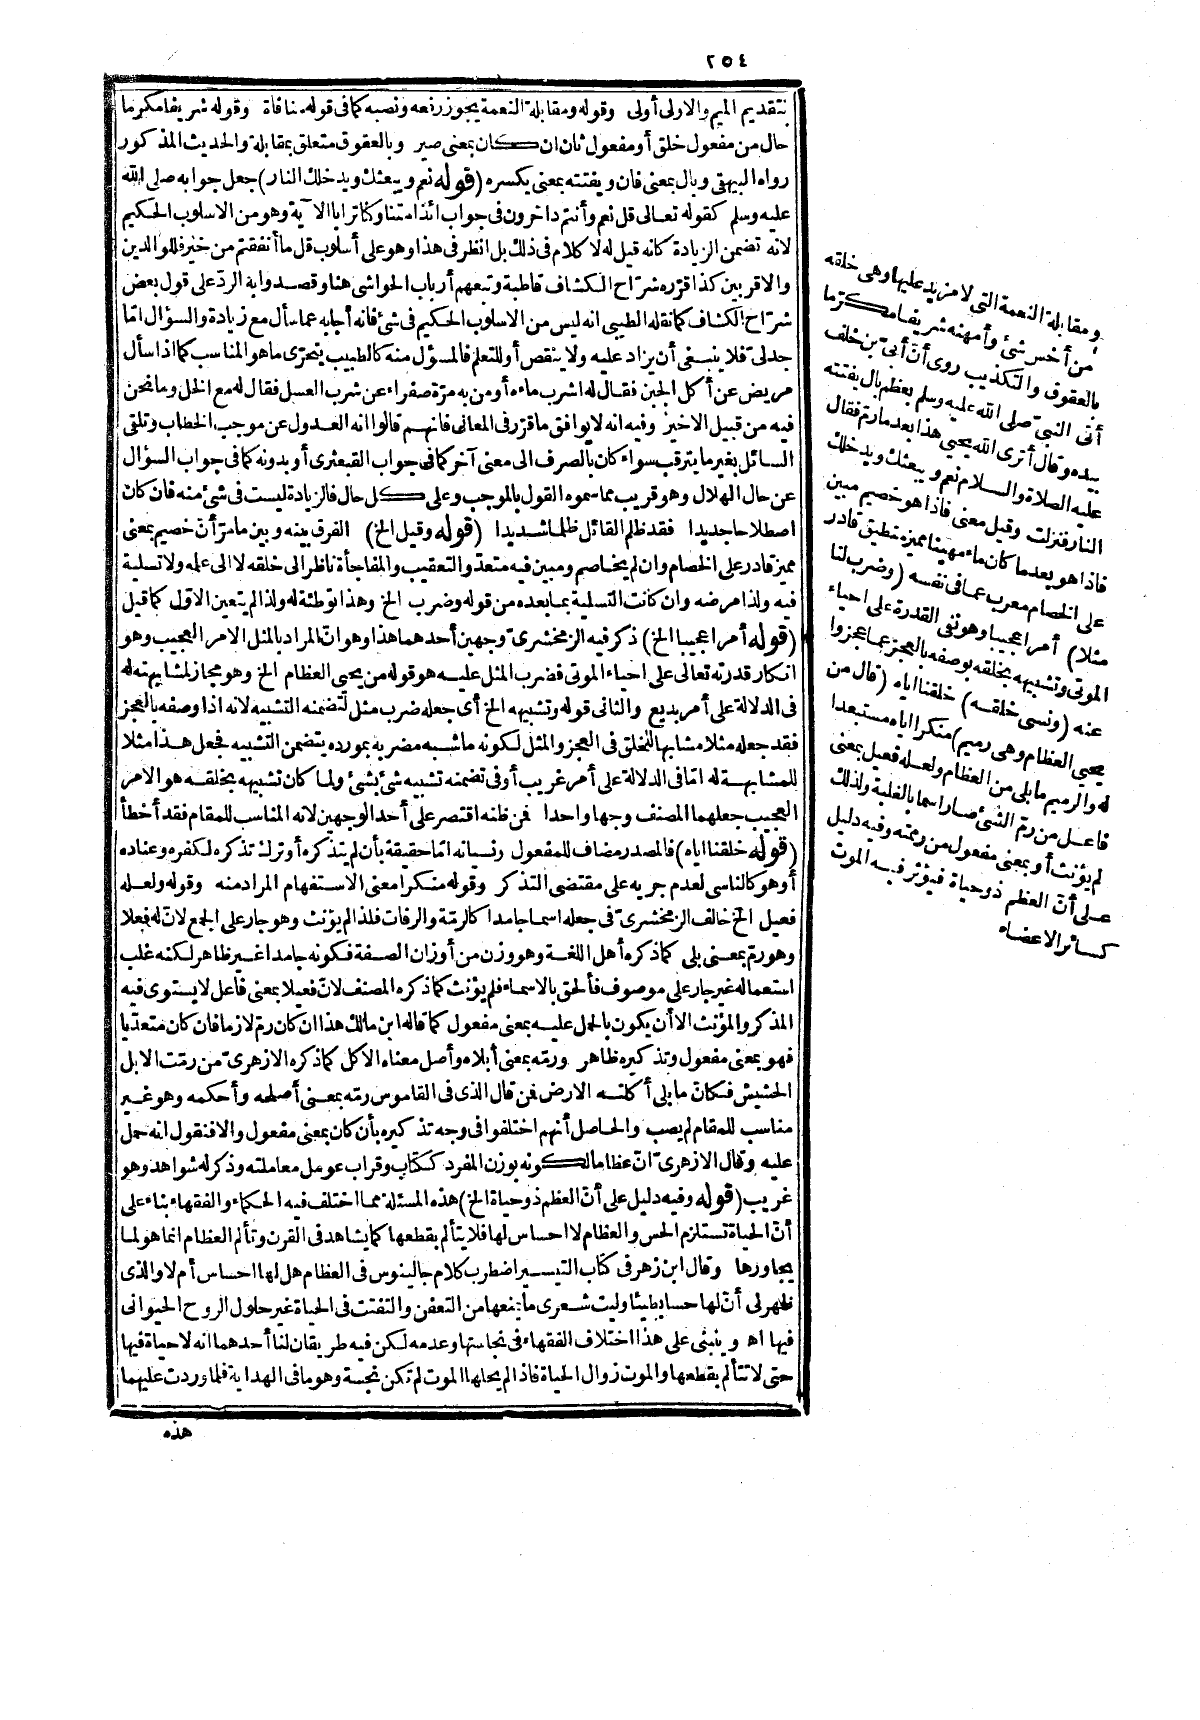 ٢٥٤
بتقديم الميم والاولى أولى وقوله ومقابلة النعمة يجوز رفعه ونصبه كما فى قوله منافاة وقوله شريفا مكرما
حال من مفعول خلق أو مفعول ثان ان كان بمعنى صير وبالعقوق متعلق بمقابلة والحديث المذكور
رواه البيهقى وبال بمعنى فان ويفتته بمعنى يكسره (قوله نعم ويبعثك ويدخلك النار) جعل جوابه صلى الله
عليه وسلم كقوله تعالى قل نعم وأنتم داخرون فى جواب ائذا متنا وكنا ترابا الآية وهو من الاسلوب الحكيم
لانه تضمن الزيادة كانه قيل له لا كلام فى ذلك بل انظر فى هذا وهو على أسلوب قل ما أنفقتم من خير فللوالدين
والاقربين كذا قرره شراح الكشاف قاطبة وتبعهم أرباب الحواشى هنا وقصدوا به الردّ على قول بعض
شراح الكشاف كما نقله الطيبى انه ليس من الاسلوب الحكيم فى شئ فانه أجابه عما سأل مع زيادة والسؤال امّا
جدلىّ فلا ينبغى أن يزاد عليه ولا ينقص أو للتعلم فالمسؤل منه كالطبيب يتحرّى ما هو المناسب كما اذا سأل
مريض عن أكل الجبن فقال له اشرب ماءه أو من به مرّة صفراء عن شرب العسل فقال له مع الخل وما نحن
فيه من قبيل الاخير وفيه انه لا يوافق ما قرّر فى المعانى فانهم قالوا انه العدول عن موجب الخطاب وتلقى
السائل بغير ما يترقب سواء كان بالصرف الى معنى آخر كما فى جواب القبعثرى أو بدونه كما فى جواب السؤال
عن حال الهلال وهو قريب مما سموه القول بالموجب وعلى كل حال فالزيادة ليست فى شئ منه فان كان
اصطلاحا جديدا فقد ظلم القائل ظلما شديدا (قوله وقيل الخ) الفرق بينه وبين ما مرّ أنّ خصيم بمعنى
مميز قادر على الخصام وان لم يخاصم ومبين فيه متعدّ والتعقيب والمفاجأة ناظر الى خلقه لا الى علمه ولا تسلية
فيه ولذا مرضه وان كانت التسلية بما بعده من قوله وضرب الخ وهذا توطئة له ولذا لم يتعين الاول كما قيل
(قوله أمرا عجيبا الخ) ذكر فيه الزمخشرىّ وجهين أحدهما هذا وهو انّ المراد بالمثل الامر العجيب وهو
انكار قدرته تعالى على احياء الموتى فضرب المثل عليه هو قوله من يحيى العظام الخ وهو مجاز لمشابهته له
فى الدلالة على أمر بديع والثانى قوله وتشبيهه الخ أى جعله ضرب مثل لتضمنه التشبيه لانه اذا وصفه بالعجز
فقد جعله مثلا مشابها للخلق فى العجز والمثل لكونه ما شبه مضربه بمورده يتضمن التشبيه فجعل هذا مثلا
للمشابهة له امّا فى الدلالة على أمر غريب أو فى تضمنه تشبيه شئ بشئ ولما كان تشبيهه بخلقه هو الامر
العجيب جعلهما المصنف وجها واحدا فمن ظنه اقتصر على أحد الوجهين لانه المناسب للمقام فقد أخطأ
(قوله خلقنا اياه) فالمصدر مضاف للمفعول ونسيانه امّا حقيقة بأن لم يتذكره أو ترك تذكره لكفره وعناده
أو هو كالناسى لعدم جريه على مقتضى التذكر وقوله منكرا معنى الاستفهام المراد منه وقوله ولعله
فعيل الخ خالف الزمخشرىّ فى جعله اسما جامدا كالرمّة والرفات فلذا لم يؤنث وهو جار على الجمع لانّ له فعلا
وهو رمّ بمعنى بلى كما ذكره أهل اللغة وهو وزن من أوزان الصفة فكونه جامدا غير ظاهر لكنه غلب
استعماله غير جار على موصوف فألحق بالاسماء فلم يؤنث كما ذكره المصنف لانّ فعيلا بمعنى فاعل لا يستوى فيه
المذكر والمؤنث الا أن يكون بالحمل عليه بمعنى مفعول كما قاله ابن مالك هذا ان كان رمّ لازما فان كان متعدّيا
فهو بمعنى مفعول وتذكيره ظاهر ورمّه بمعنى أبلاه وأصل معناه الاكل كما ذكره الازهرىّ من رمّت الابل
الحشيش فكانّ ما بلى أكلته الارض فمن قال الذى فى القاموس رمّه بمعنى أصلحه وأحكمه وهو غير
مناسب للمقام لم يصب والحاصل أنهم اختلفوا فى وجه تذكيره بأن كان بمعنى مفعول والا فنقول انه حمل
عليه وقال الازهرىّ انّ عظاما لكونه بوزن المفرد ككتاب وقراب عومل معاملته وذكر له شواهد وهو
غريب (قوله وفيه دليل على أنّ العظم ذو حياة الخ) هذه المسئلة مما اختلف فيه الحكماء والفقهاء بناء على
أنّ الحياة تستلزم الحس والعظام لا احساس لها فلا يتألم بقطعها كما يشاهد فى القرن وتألم العظام انما هو لما
يجاورها وقال ابن زهر فى كتاب التيسير اضطرب كلام جالينوس فى العظام هل لها احساس أم لا والذى
ظهر لى أنّ لها حسا بطيئا وليت شعرى ما يمنعها من التعفن والتفتت فى الحياة غير حلول الروح الحيوانى
فيها اه وينبنى على هذا اختلاف الفقهاء فى نجاستها وعدمه لكن فيه طريقان لنا أحدهما انه لا حياة فيها
حتى لا تتألم بقطعها والموت زوال الحياة فاذا لم يحلها الموت لم تكن نجسة وهو ما فى الهداية فلما وردت عليهما
هذه
ومقابلة النعمة التى لا مزيد عليها وهى خلقه
من أخس شئ وأمهنه شريفا مكرّما
بالعقوق والتكذيب روى أنّ أبىّ بن خلف
أتى النبىّ صلى الله عليه وسلم بعظم بال يفتته
بيده وقال أترى الله يحيى هذا بعد مارم فقال
عليه الصلاة والسلام نعم ويبعثك ويدخلك
النار فنزلت وقيل معنى فاذا هو خصيم مبين
فاذا هو بعد ما كان ماء مهينا مميز منطيق قادر
على الخصام معرب عما فى نفسه (وضرب لنا
مثلا) أمرا عجيبا وهو نفى القدرة على احياء
الموتى وتشبيهه بخلقه بوصفه بالعجز عما عجزوا
عنه (ونسى خلقه) خلقنا اياه (قال من
يحيى العظام وهى رميم) منكرا اياه مستبعدا
له والرميم ما بلى من العظام ولعله فعيل بمعنى
فاعل من رمّ الشئ صار اسما بالغلبة ولذلك
لم يؤنث أو بمعنى مفعول من رممته وفيه دليل
على أنّ العظم ذو حياة فيؤثر فيه الموت
كسائر الاعضاء